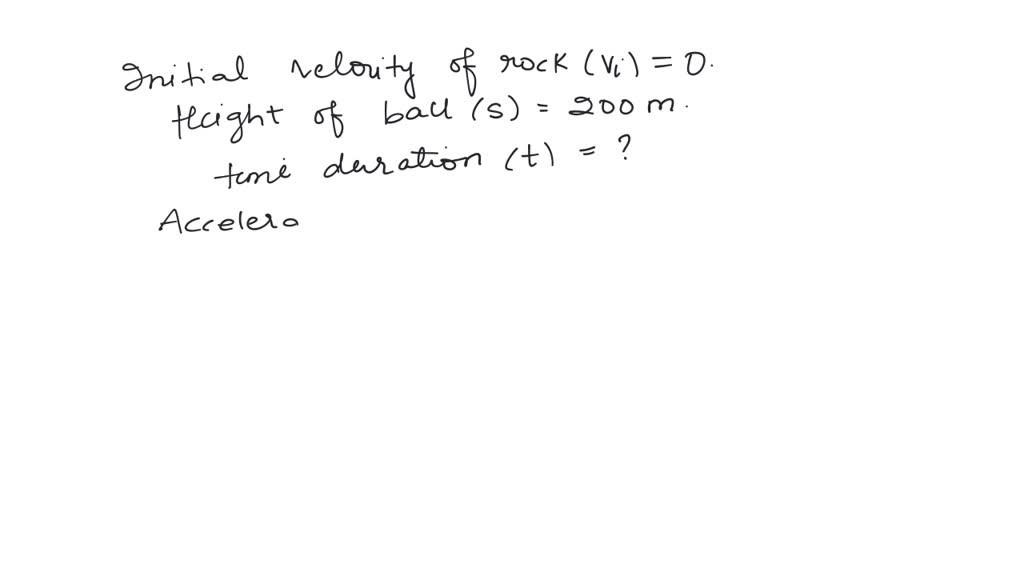 Initial velocity of rock (Vi) = 0.
Height of ball (s) = 200 m.
time duration (t) = ?
Accelera